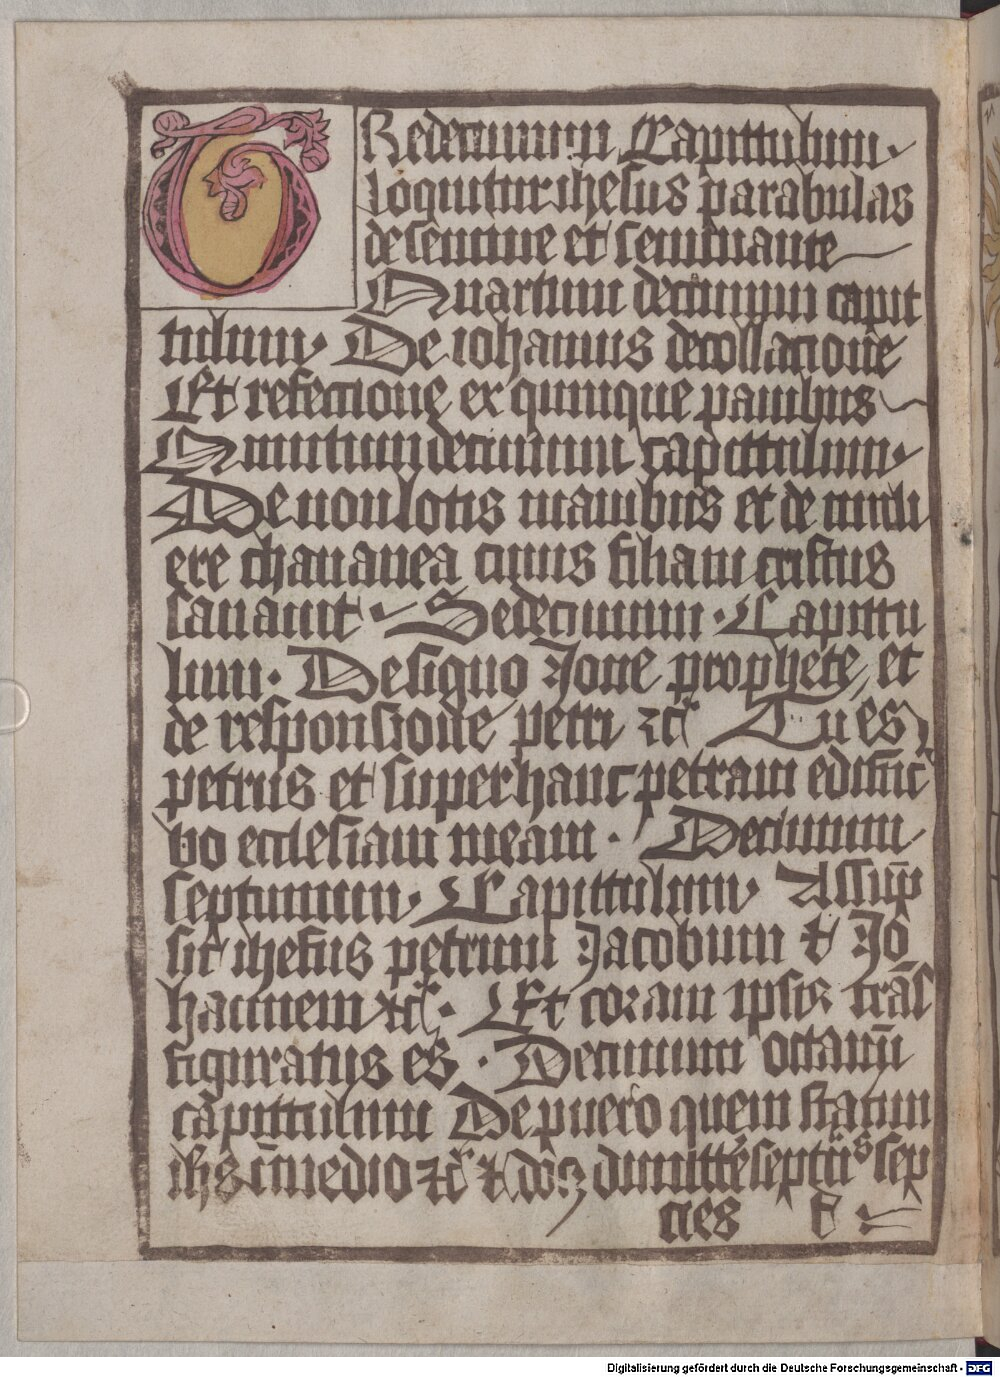 TRedecimum Capittulum.
loquitur ihesus parabulas
de semine et seminante
Quartum decimum capit
tulum. De iohannis decollacione
Et refectione ex quinque panibus
Quintum decimum capittulum.
De non lotis manibus et de muli
ere chananea cuius filiam cristus
sanauit. Sedecimum. Capittu
lum. De signo Jone prophete, et
de responsione petri ⁊cͣ Tu es
petrus et super hanc petram edific
bo ecclesiam meam. Decimum
septimum. Capittulum. Assūp
sit ihesus petrum Jacobum ⁊ Jo
hannem ⁊cͣ. Et coram ipsis trās
figuratus es. Decimum octauū
capittulum De puero quem statuit
ihs ī medio ⁊cͣ ⁊ dimitte septies sep
cies F
Digitalisierung gefördert durch die Deutsche Forschungsgemeinschaft - DFG